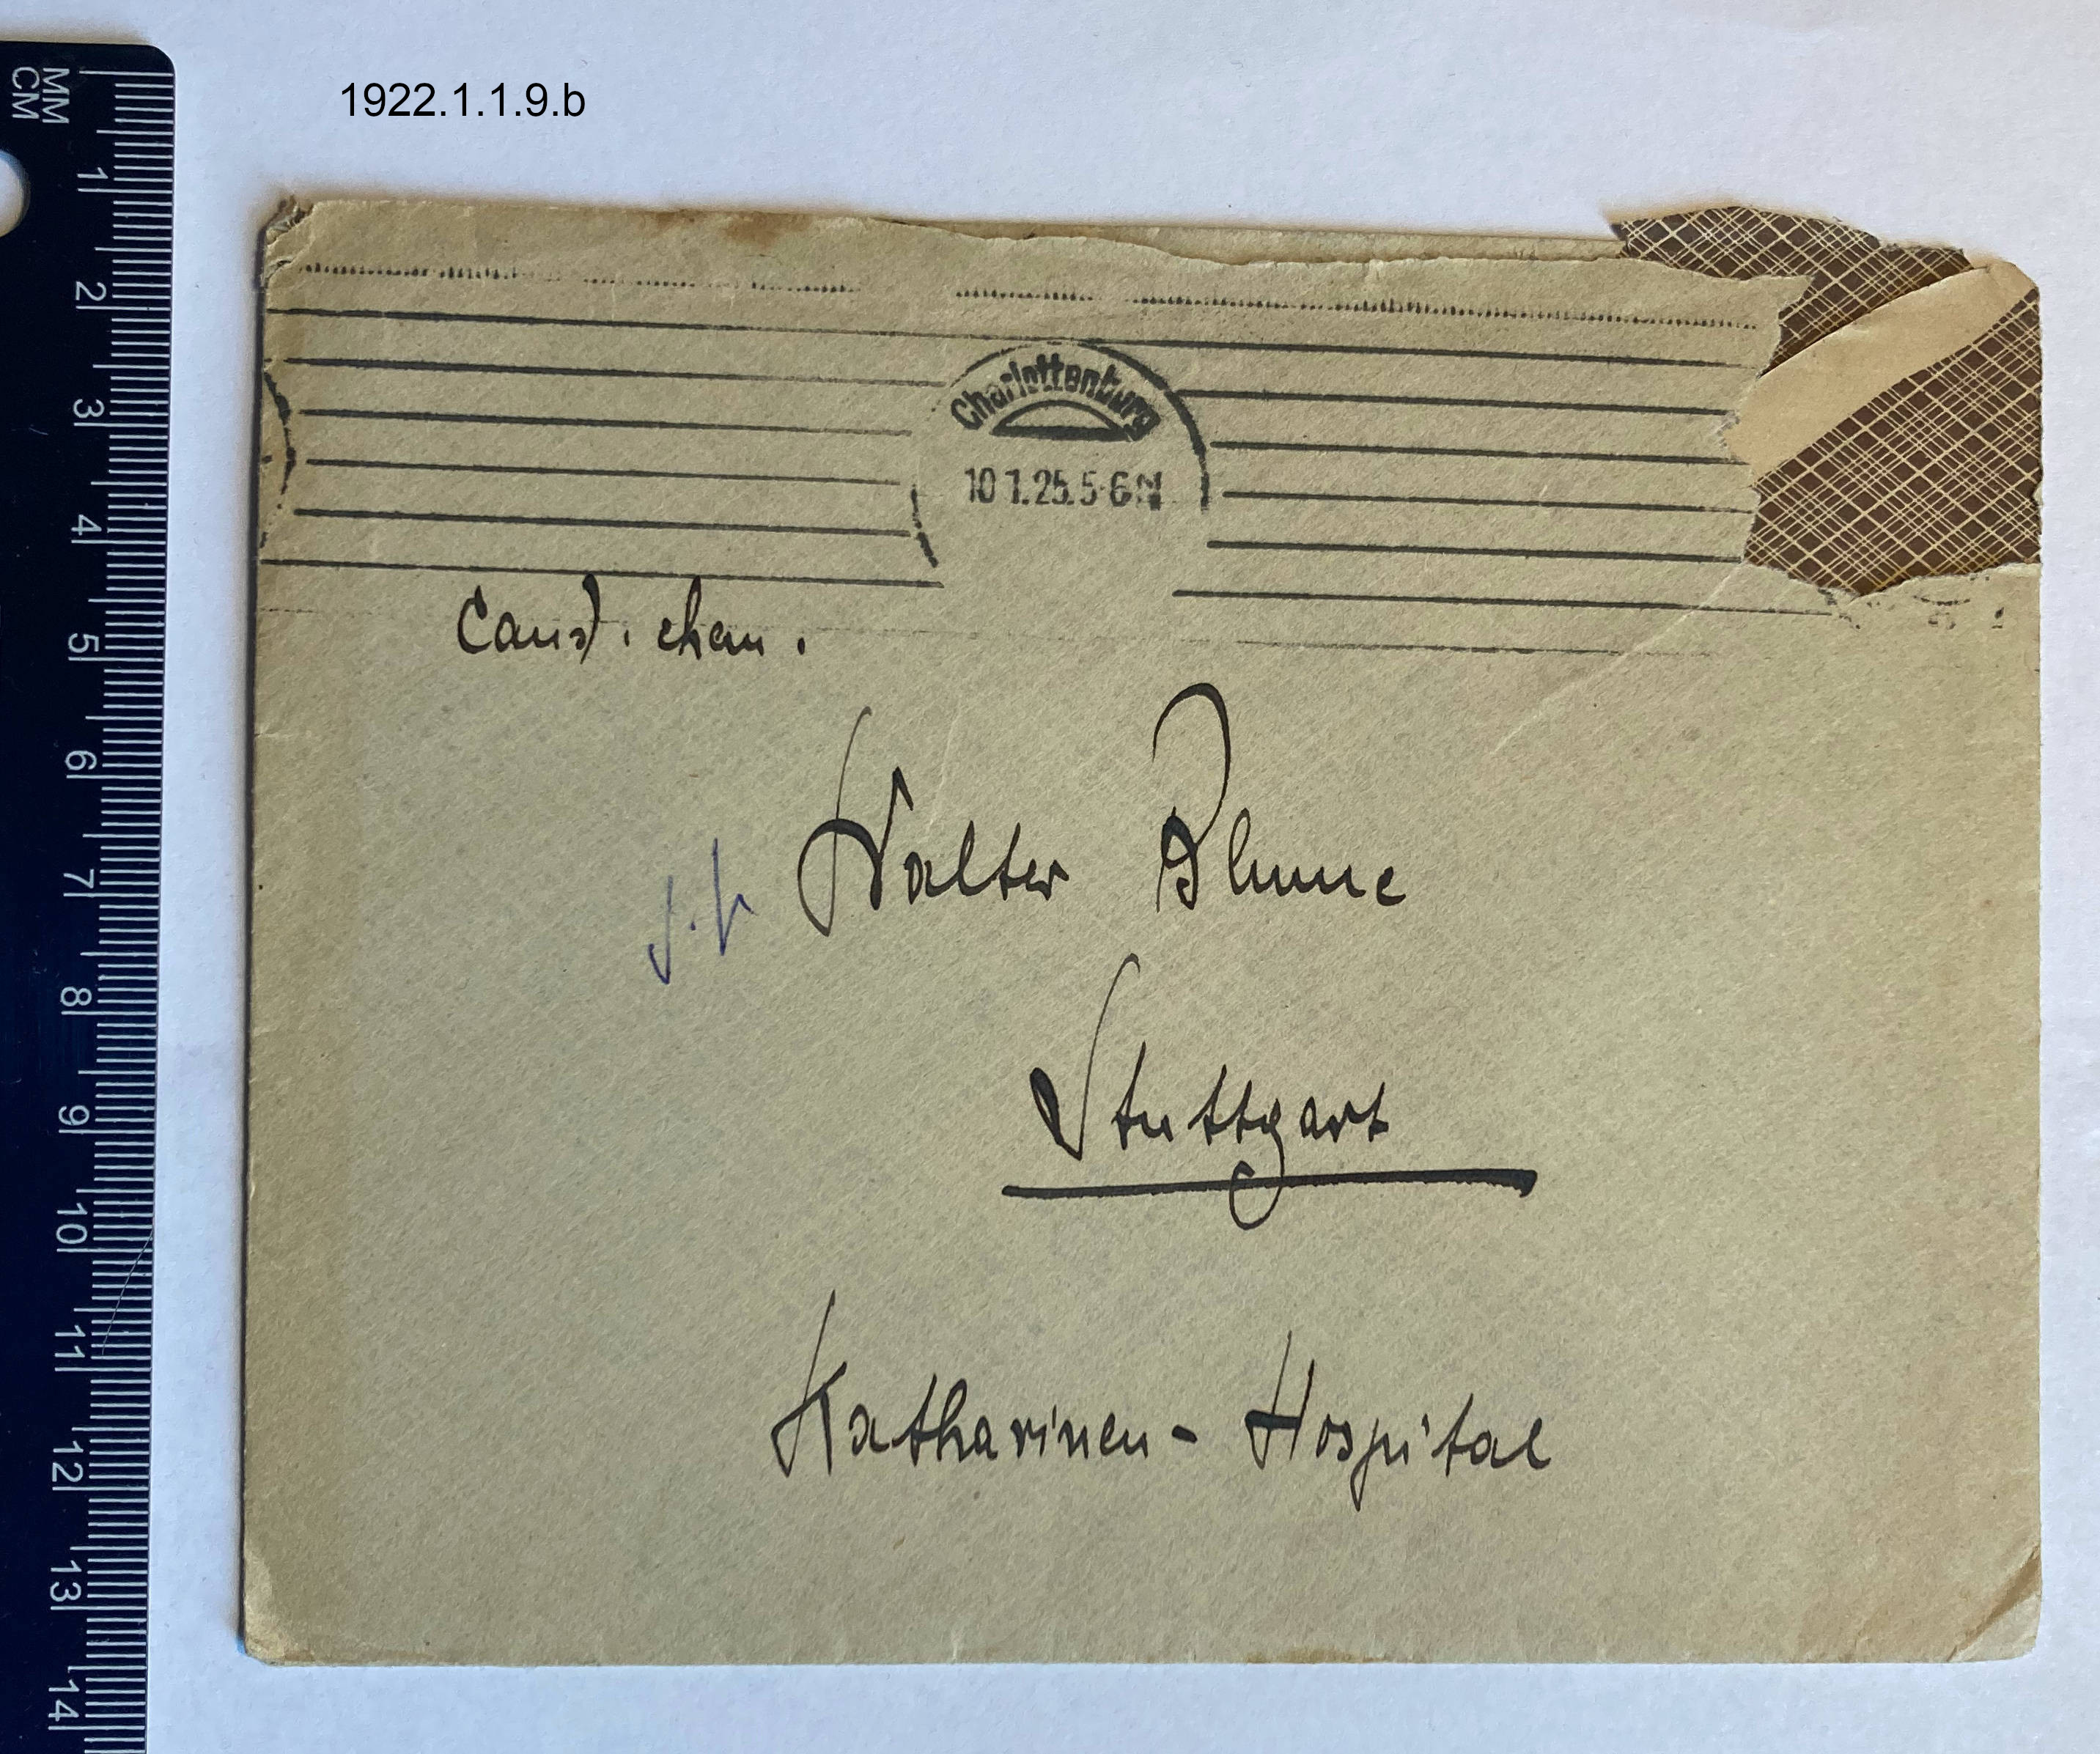 1922.1.1.9.b
MM
CM
1
2
3
4
5
6
7
8
9
10
11
12
13
14
Charlottenburg
10.1.25. 5-6 N
Cand. chem.
Walter Blume
Stuttgart
Katharinen-Hospital